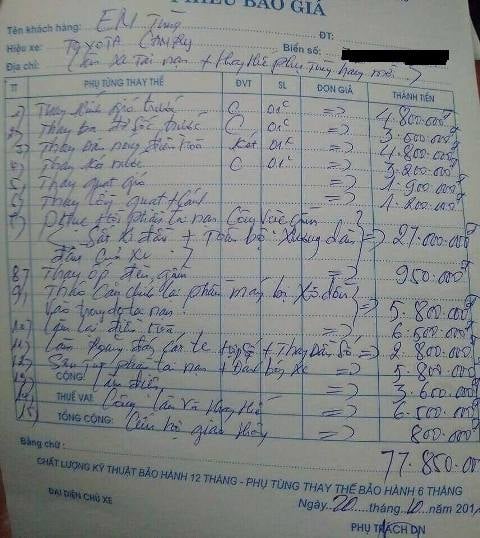 PHIẾU BÁO GIÁ
Tên khách hàng: EM Tùng ĐT:
Hiệu xe: TOYOTA CAMRY Biển số:
Địa chỉ: Xe Tai nan + thay thế phụ tùng
TT PHỤ TÙNG THAY THẾ ĐVT SL ĐƠN GIÁ THÀNH TIỀN
1) Thay kính gió trước C 01C => 4.800.000đ
2) Thay ba đờ sốc trước C 01C => 3.600.000đ
3) Thay dàn nóng điều hòa két 01C => 4.800.000đ
4) Thay két nước C 01C => 3.200.000đ
5) Thay quạt gió => 1.900.000đ
6) Thay lồng quạt => 1.200.000đ
7) Phục hồi phần tai nạn
Sắt xi đầu + toàn bộ xương đầu => 27.000.000đ
đầu của xe
8) Thay ốp đèn gầm => 950.000đ
9) Tháo cân chỉnh lại phần máy bị xô dồn
vào trong do tai nạn => 5.800.000
10) Làm lại điều hòa => 6.500.000
11) Làm => 2.800.000
12) Sơn phần tai nạn + => 5.800
CỘNG:
13) Làm điện => 3.600
THUẾ VAT
14) Công làm và thay thế => 6.500.000
TỔNG CỘNG:
15) Cứu hộ giao thông => 800.000đ
Bằng chữ: 77.850.000
CHẤT LƯỢNG KỸ THUẬT BẢO HÀNH 12 THÁNG - PHỤ TÙNG THAY THẾ BẢO HÀNH 6 THÁNG
Ngày 20 tháng 10 năm 201
ĐẠI DIỆN CHỦ XE PHỤ TRÁCH DN